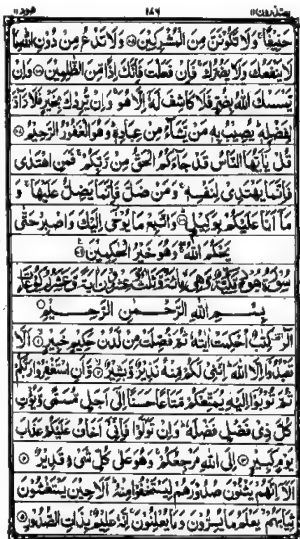 يعتذرون ١١ ١٨٦ هود ١١
حَنِيْفًا ۚ وَلَا تَكُوْنَنَّ مِنَ الْمُشْرِكِيْنَ ۝ وَلَا تَدْعُ مِنْ دُوْنِ اللّٰهِ مَا
لَا يَنْفَعُكَ وَلَا يَضُرُّكَ ۚ فَاِنْ فَعَلْتَ فَاِنَّكَ اِذًا مِّنَ الظّٰلِمِيْنَ ۝ وَاِنْ
يَّمْسَسْكَ اللّٰهُ بِضُرٍّ فَلَا كَاشِفَ لَهٗٓ اِلَّا هُوَ ۚ وَاِنْ يُّرِدْكَ بِخَيْرٍ فَلَا رَآدَّ
لِفَضْلِهٖ ۭ يُصِيْبُ بِهٖ مَنْ يَّشَاۗءُ مِنْ عِبَادِهٖ ۭ وَهُوَ الْغَفُوْرُ الرَّحِيْمُ ۝
قُلْ يٰٓاَيُّهَا النَّاسُ قَدْ جَاۗءَكُمُ الْحَقُّ مِنْ رَّبِّكُمْ ۚ فَمَنِ اهْتَدٰى
فَاِنَّمَا يَهْتَدِيْ لِنَفْسِهٖ ۚ وَمَنْ ضَلَّ فَاِنَّمَا يَضِلُّ عَلَيْهَا ۚ وَ
مَآ اَنَا عَلَيْكُمْ بِوَكِيْلٍ ۝ وَاتَّبِعْ مَا يُوْحٰٓى اِلَيْكَ وَاصْبِرْ حَتّٰى
يَحْكُمَ اللّٰهُ ۚ وَهُوَ خَيْرُ الْحٰكِمِيْنَ ۝
سُوْرَةُ هُوْدٍ مَّكِّيَّةٌ وَّهِيَ مِائَةٌ وَّثَلٰثٌ وَّعِشْرُوْنَ اٰيَةً وَّعَشْرُ رُكُوْعَاتٍ
بِسْمِ اللّٰهِ الرَّحْمٰنِ الرَّحِيْمِ ۝
الٓرٰ ۣ كِتٰبٌ اُحْكِمَتْ اٰيٰتُهٗ ثُمَّ فُصِّلَتْ مِنْ لَّدُنْ حَكِيْمٍ خَبِيْرٍ ۝ اَلَّا
تَعْبُدُوْٓا اِلَّا اللّٰهَ ۭ اِنَّنِيْ لَكُمْ مِّنْهُ نَذِيْرٌ وَّبَشِيْرٌ ۝ وَّاَنِ اسْتَغْفِرُوْا رَبَّكُمْ
ثُمَّ تُوْبُوْٓا اِلَيْهِ يُمَتِّعْكُمْ مَّتَاعًا حَسَنًا اِلٰٓى اَجَلٍ مُّسَمًّى وَّيُؤْتِ
كُلَّ ذِيْ فَضْلٍ فَضْلَهٗ ۭ وَاِنْ تَوَلَّوْا فَاِنِّىْٓ اَخَافُ عَلَيْكُمْ عَذَابَ
يَوْمٍ كَبِيْرٍ ۝ اِلَى اللّٰهِ مَرْجِعُكُمْ ۚ وَهُوَ عَلٰي كُلِّ شَيْءٍ قَدِيْرٌ ۝
اَلَآ اِنَّهُمْ يَثْنُوْنَ صُدُوْرَهُمْ لِيَسْتَخْفُوْا مِنْهُ ۭ اَلَا حِيْنَ يَسْتَغْشُوْنَ
ثِيَابَهُمْ ۙ يَعْلَمُ مَا يُسِرُّوْنَ وَمَا يُعْلِنُوْنَ ۚ اِنَّهٗ عَلِيْمٌۢ بِذَاتِ الصُّدُوْرِ ۝